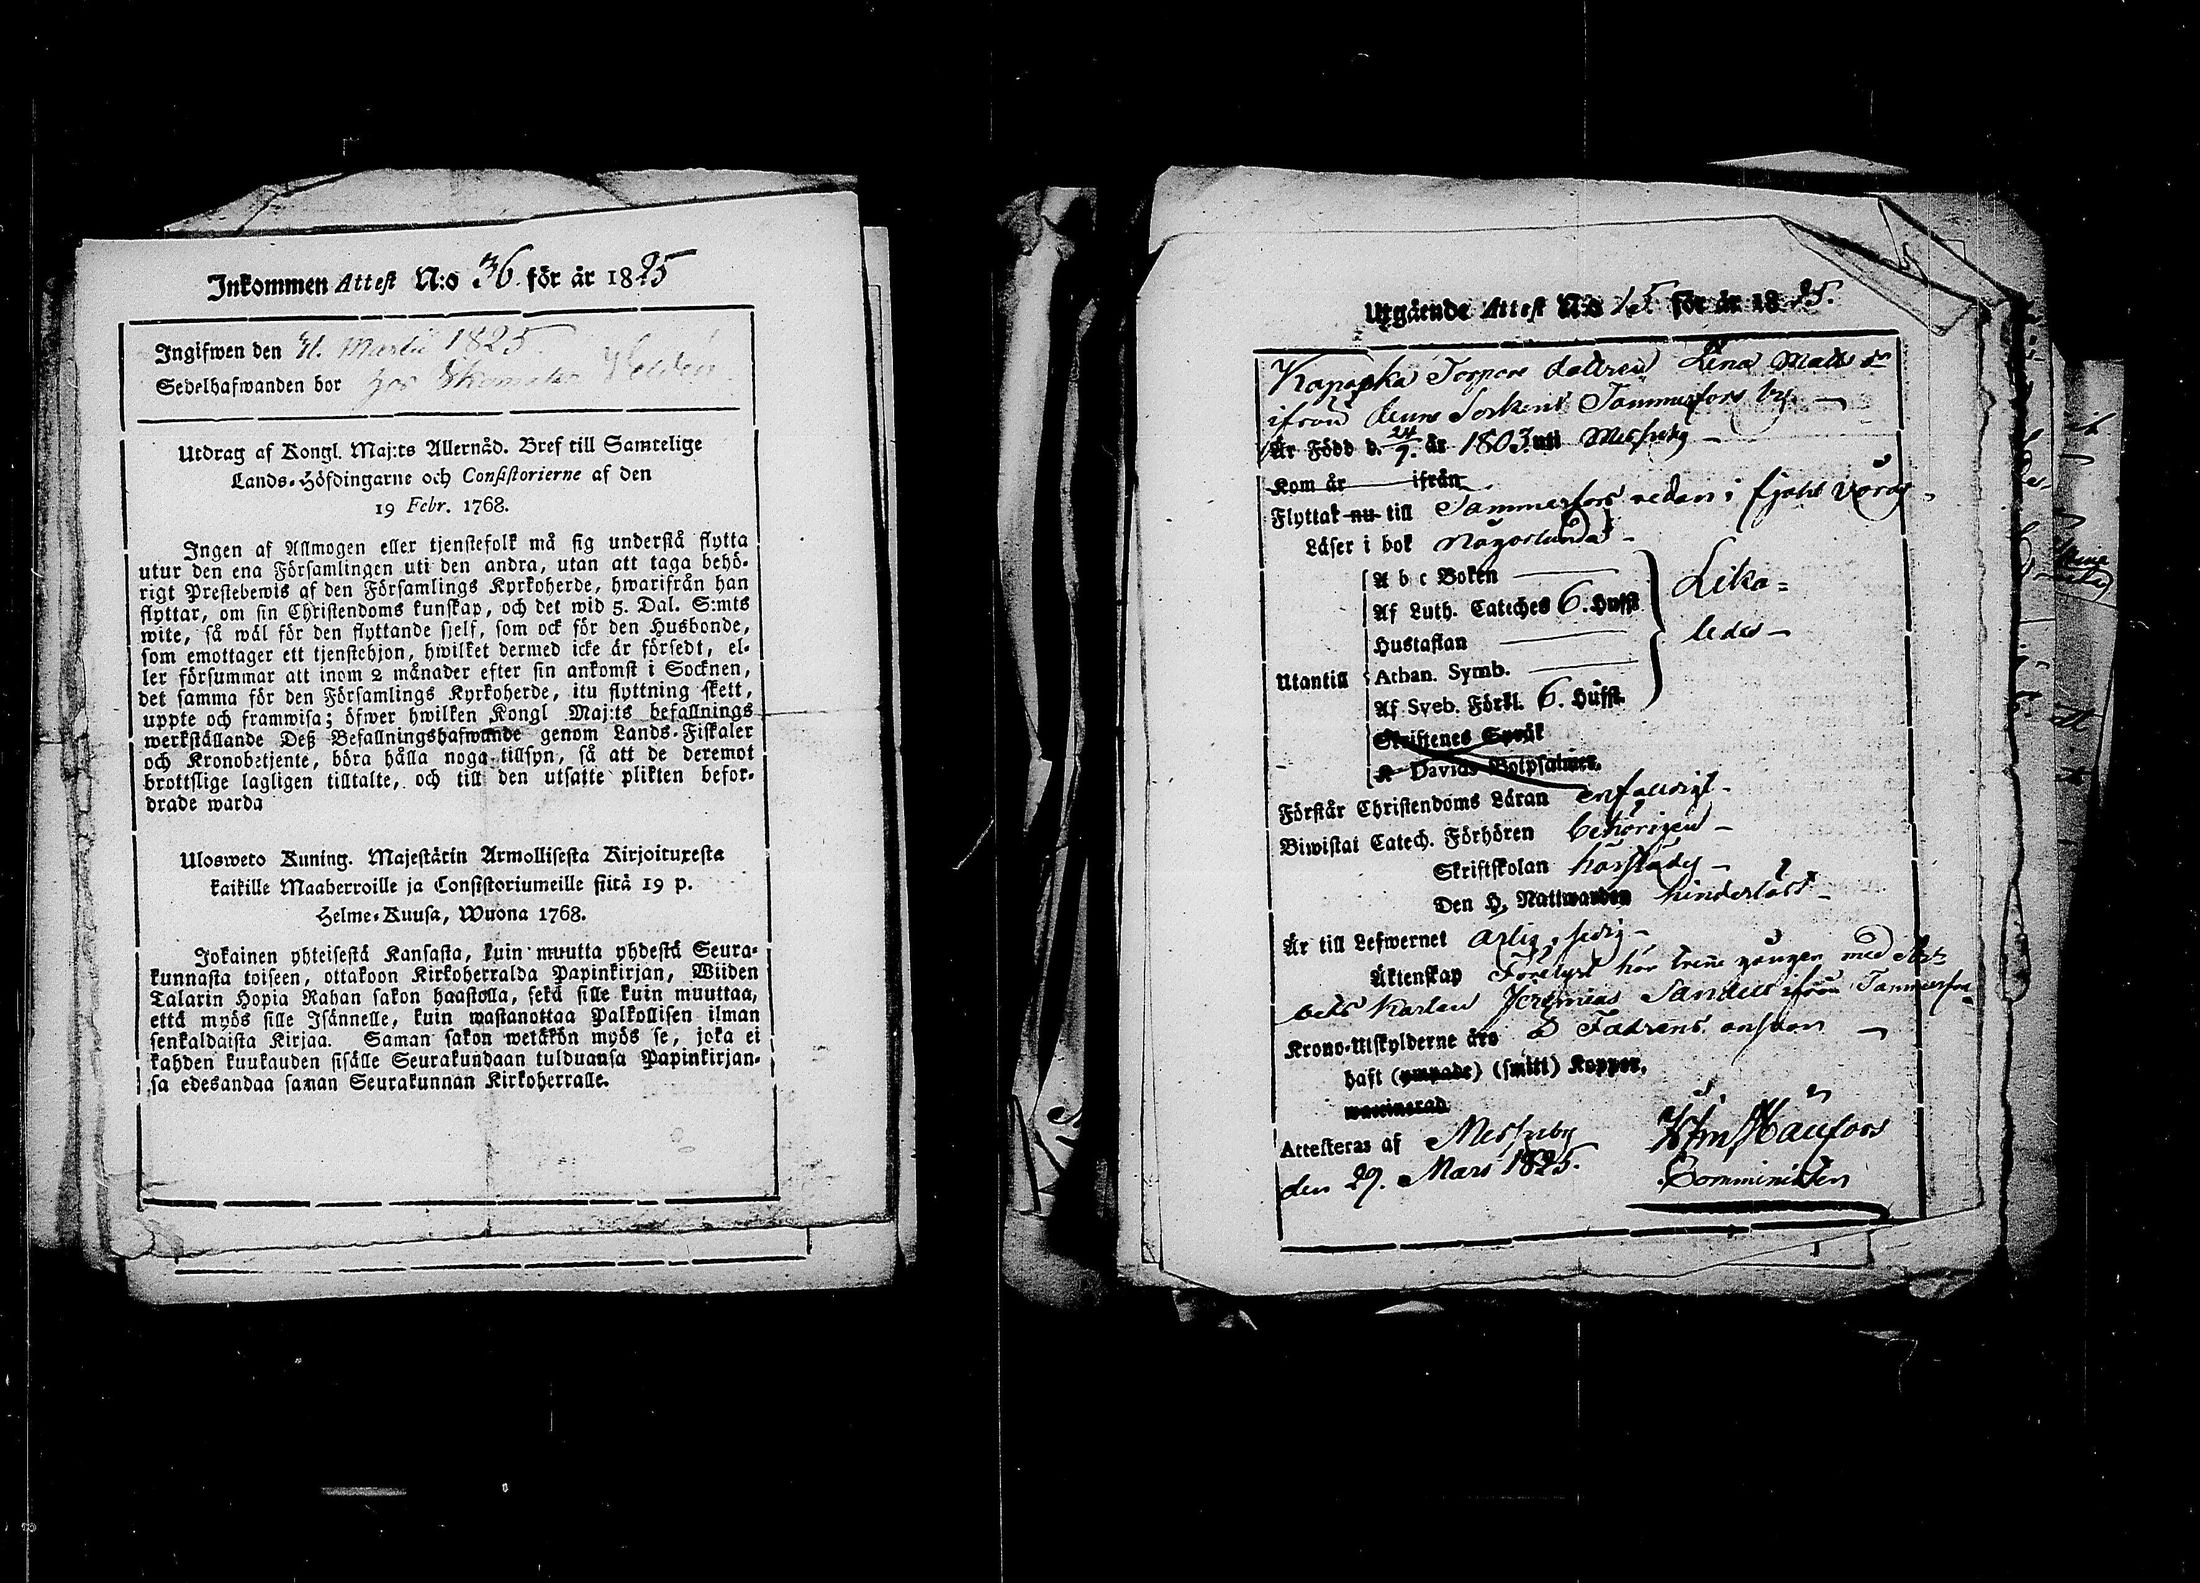 Inkommen Attest N:o 36 för år 1825
Ingifwen den 31. Martii 1825.
Sedelhafwanden bor hos Skomakar
Utdrag af Kongl. Maj:ts Allernåd. Bref till Samtelige
Lands-Höfdingarne och Consistorierne af den
19 Febr. 1768.
Ingen af Allmogen eller tjenstefolk må sig understå flytta
utur den ena Församlingen uti den andra, utan att taga behö-
rigt Prestebewis af den Församlings Kyrkoherde, hwarifrån han
flyttar, om sin Christendoms kunskap, och det wid 5. Dal. S:mts
wite, så wäl för den flyttande sjelf, som ock för den Husbonde,
som emottager ett tjenstehjon, hwilket dermed icke är försedt, el-
ler försummar att inom 2 månader efter sin ankomst i Socknen,
det samma för den Församlings Kyrkoherde, itu flyttning skett,
uppte och framwisa; öfwer hwilken Kongl Maj:ts befallnings
werkställande Deß Befallningshafwande genom Lands-Fiskaler
och Kronobetjente, böra hålla noga tillsyn, så att de deremot
brottslige lagligen tilltalte, och till den utsatte plikten befor-
drade warda
Ulosweto Kuning. Majestätin Armollisesta Kirjoituxesta
kaikille Maaherroille ja Consistoriumeille siitä 19 p.
Helme-Kuusa, Wuona 1768.
Jokainen yhteisestä Kansasta, kuin muutta yhdestä Seura-
kunnasta toiseen, ottakoon Kirkoherralda Papinkirjan, Wiiden
Talarin Hopia Rahan sakon haastolla, sekä sille kuin muuttaa,
että myös sille Isännelle, kuin wastanottaa Palkollisen ilman
senkaldaista Kirjaa. Saman sakon wetäkön myös se, joka ei
kahden kuukauden sisälle Seurakundaan tulduansa Papinkirjan-
sa edesandaa saman Seurakunnan Kirkoherralle.
Utgående Attest N:o 15. för år 1825.
Torpare dottren Lena Matts dr
ifrån Sockens Tammerfors by.
Är Född d. 24/7. år 1803. uti Messuby
Kom år ifrån
Flyttat nu till Tammerfors redan i fjohl
Läser i bok någorlunda
A b c Boken
Af Luth. Cateches 6. Hufst
Hustaflan
Utantill Athan. Symb.
Af Sveb. Förkl. 6. Hufst.
Lika-
ledes
Skriftenes Språk
K Davids Botpsalmer.
Förstår Christendoms Läran enfaldigt
Biwistat Catech. Förhören behörigen
Skriftskolan
Den H. Nattwarden hinderlöst
Är till Lefwernet ärlig,
Äktenskap Förelyst har trenne gånger med Ar-
bets Karlen Jeremias ifrån Tammerfors
Krono-Utskylderne äro å Fadrens ansvar
haft (ympade) (smitt) Koppor.
waccinerad.
Attesteras af Messuby
den 29. Mars 1825.